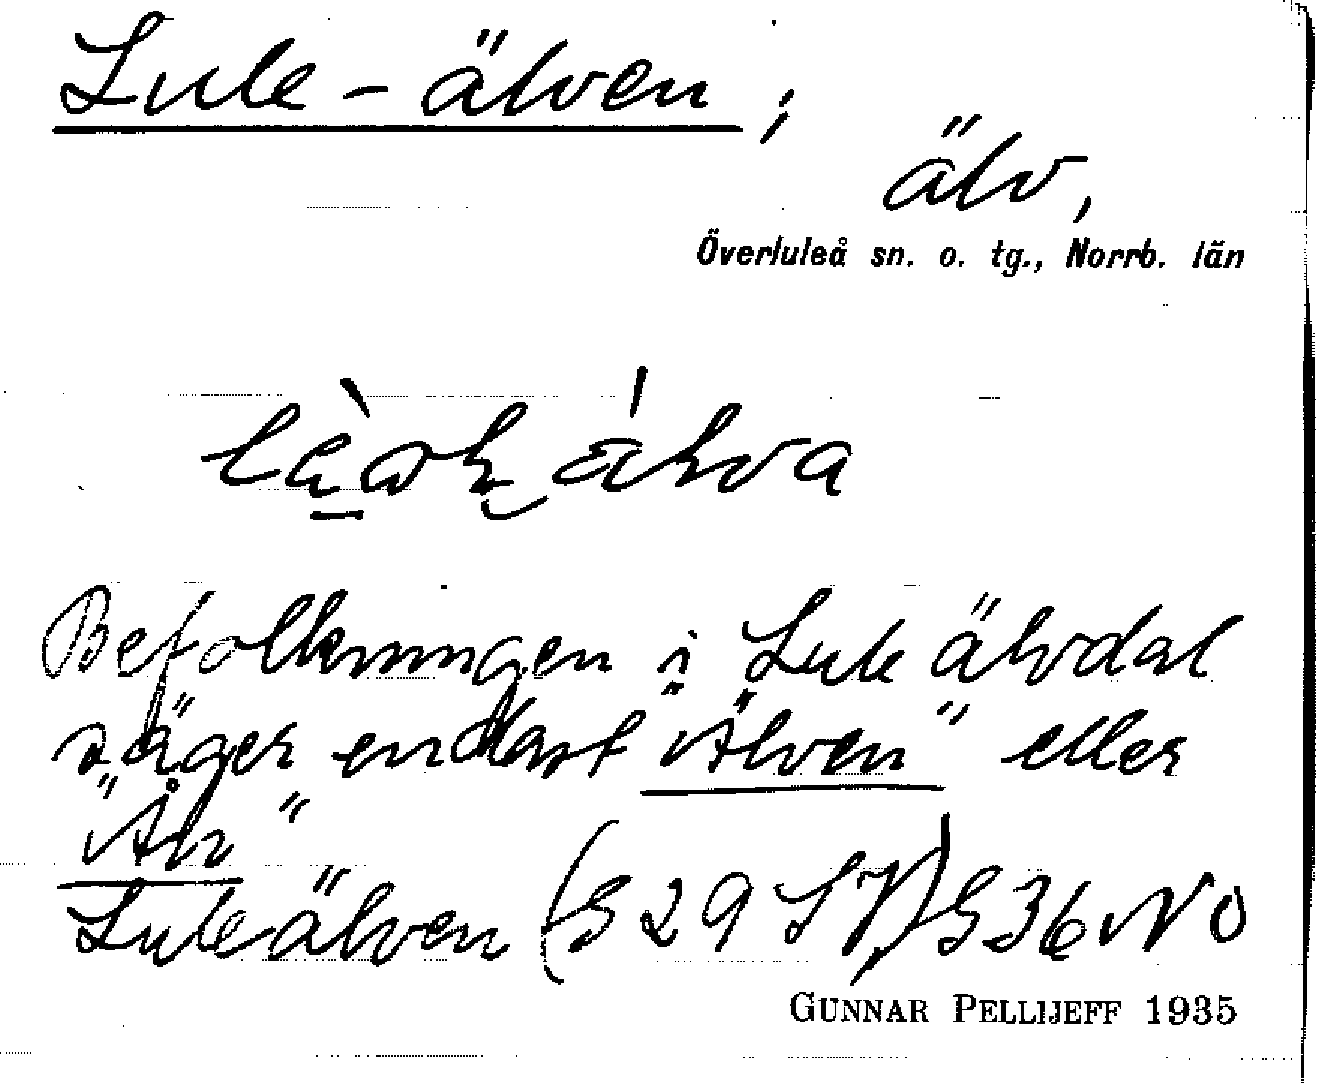 Lule-älven;
älv,
Överluleå sn. o. tg., Norrb. län
Befolkningen i Lule älvdal
säger endast "Älven" eller
"Ån"
Luleälven (G 29 SV) G 36 NO
GUNNAR PELLIJEFF 1935